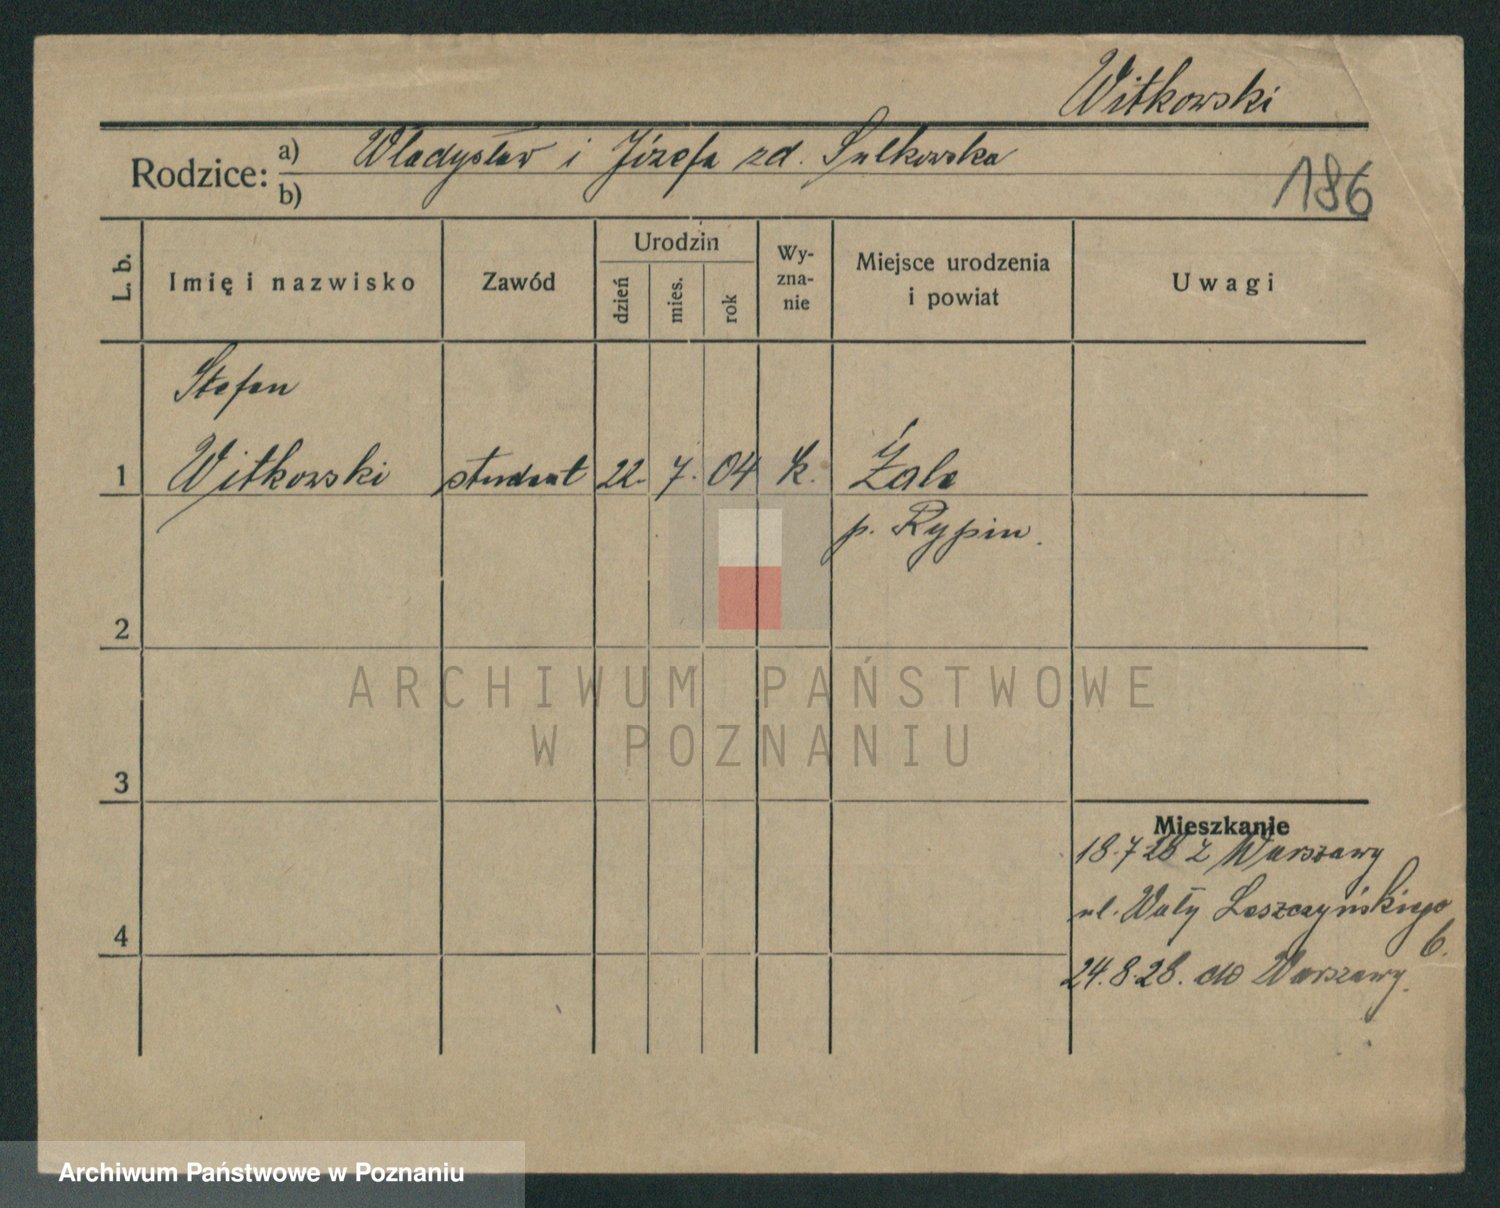 Witkowski
Rodzice: a) Władysław i Józefa zd. Sulkowska
b)
186
L. b.
Imię i nazwisko
Zawód
Urodzin
dzień
mies.
rok
Wy-
zna-
nie
Miejsce urodzenia
i powiat
Uwagi
Stefan
1 Witkowski student 22. 7. 04 k. Żałe
p. Rypin.
2
ARCHIWUM PAŃSTWOWE
W POZNANIU
3
Mieszkanie
18.7 28 z Warszawy
ul. Wały Leszczyńskiego
6.
4
24.8.28. do Warszawy.
Archiwum Państwowe w Poznaniu